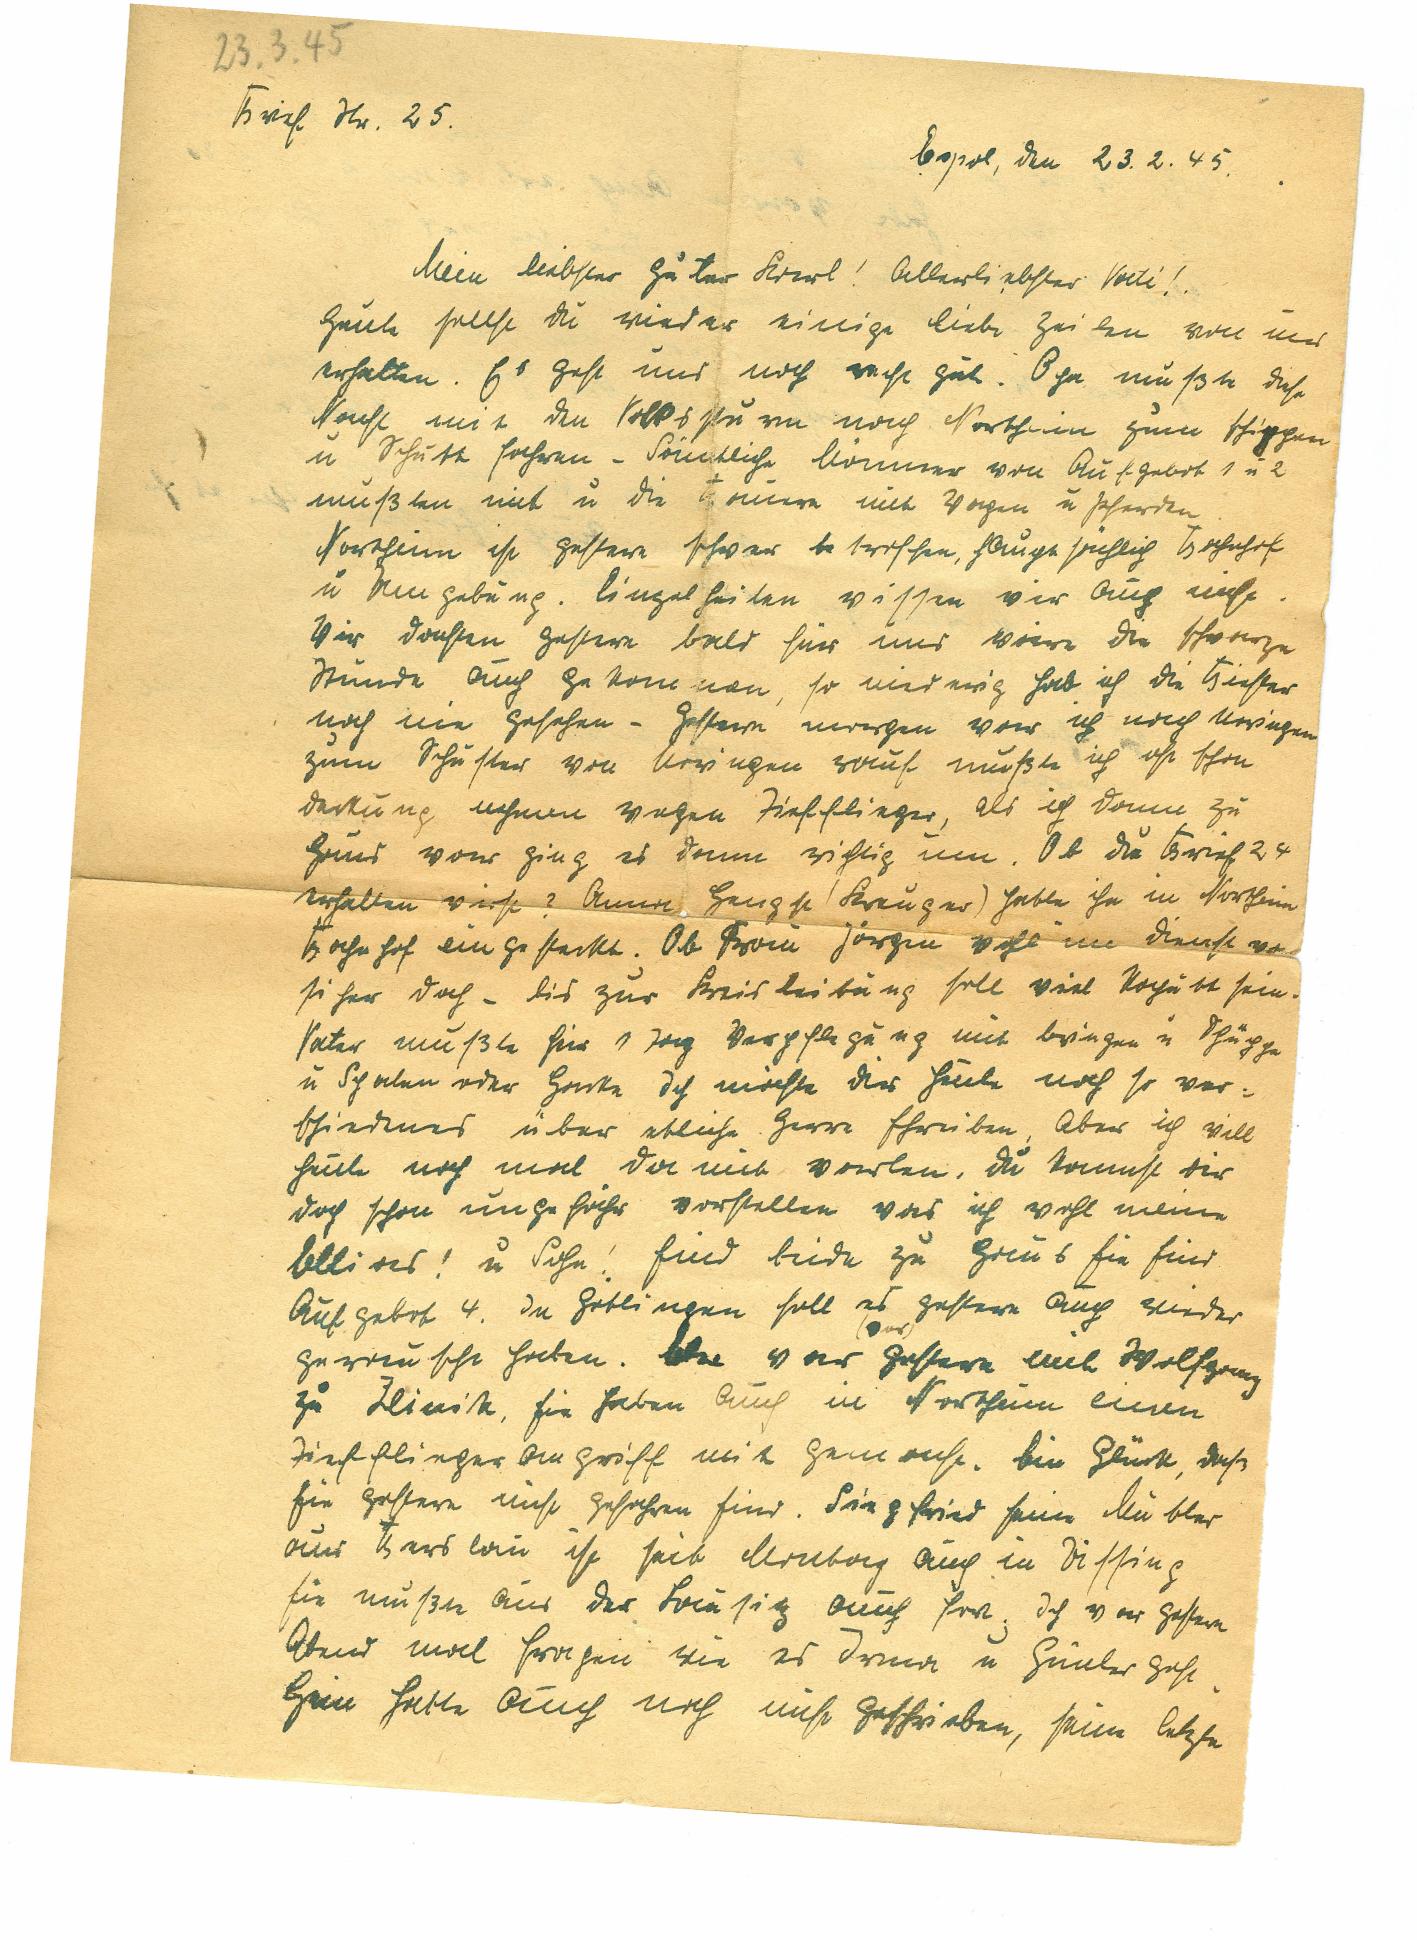 23.3.45
Brief Nr. 25.
Espol, den 23.2.45.
Mein liebster guter Karl! Allerliebster Vati!
Heute sollst du wieder einige liebe Zeilen von uns
erhalten. Es geht uns noch recht gut. Opa mußte diese
Nacht mit den Volkssturm nach Northeim zum schippen
u Schutt fahren - Sämtliche Männer von Aufgebot 1 u 2
mußten mit u die Bauern mit Wagen u Pferden
Northeim ist gestern schwer betroffen, hauptsächlich Bahnhof
u Umgebung. Einzelheiten wissen wir auch nicht.
Wir dachten gestern bald für uns wäre die schwarze
Stunde auch gekommen, so niedrig hab ich die Biester
noch nie gesehen - Gestern morgen war ich nach Moringen
zum Schuster von Moringen rauf mußte ich oft schon
deckung nehmen wegen Tiefflieger, als ich dann zu
Haus war ging es dann richtig um. Ob du Brief 24
erhalten wirst? Anna Hengst (Kreuzer) hatte ihn in Northeim
Bahnhof eingesteckt. Ob Frau Jörgen wohl im dienst war
sicher doch - bis zur Kreisleitung soll viel kaputt sein.
Vater mußte für 1 Tag Verpflegung mit bringen u Schüppe
u Spaten oder Hacke Ich möchte dir heute noch so ver=
schiedenes über etliche Herrn schreiben, aber ich will
heute noch mal damit warten. du kannst dir
doch schon ungefähr vorstellen was ich wohl meine
u Sohn! sind beide zu Haus sie sind
Aufgebot 4. In Göttingen soll es gestern auch wieder
gerauscht haben. war (vor) gestern mit Wolfgang
zu Klinik, sie haben auch in Northeim einen
Tieffliegerangriff mit gemacht. Ein Glück, daß
sie gestern nicht gefahren sind. Siegfried seine Mutter
aus Berslau ist seit Montag auch in
sie mußte aus der Lausitz auch fort. Ich war gestern
Abend mal fragen wie es Irma u Günter geht.
hatte auch noch nicht geschrieben, seine letzte